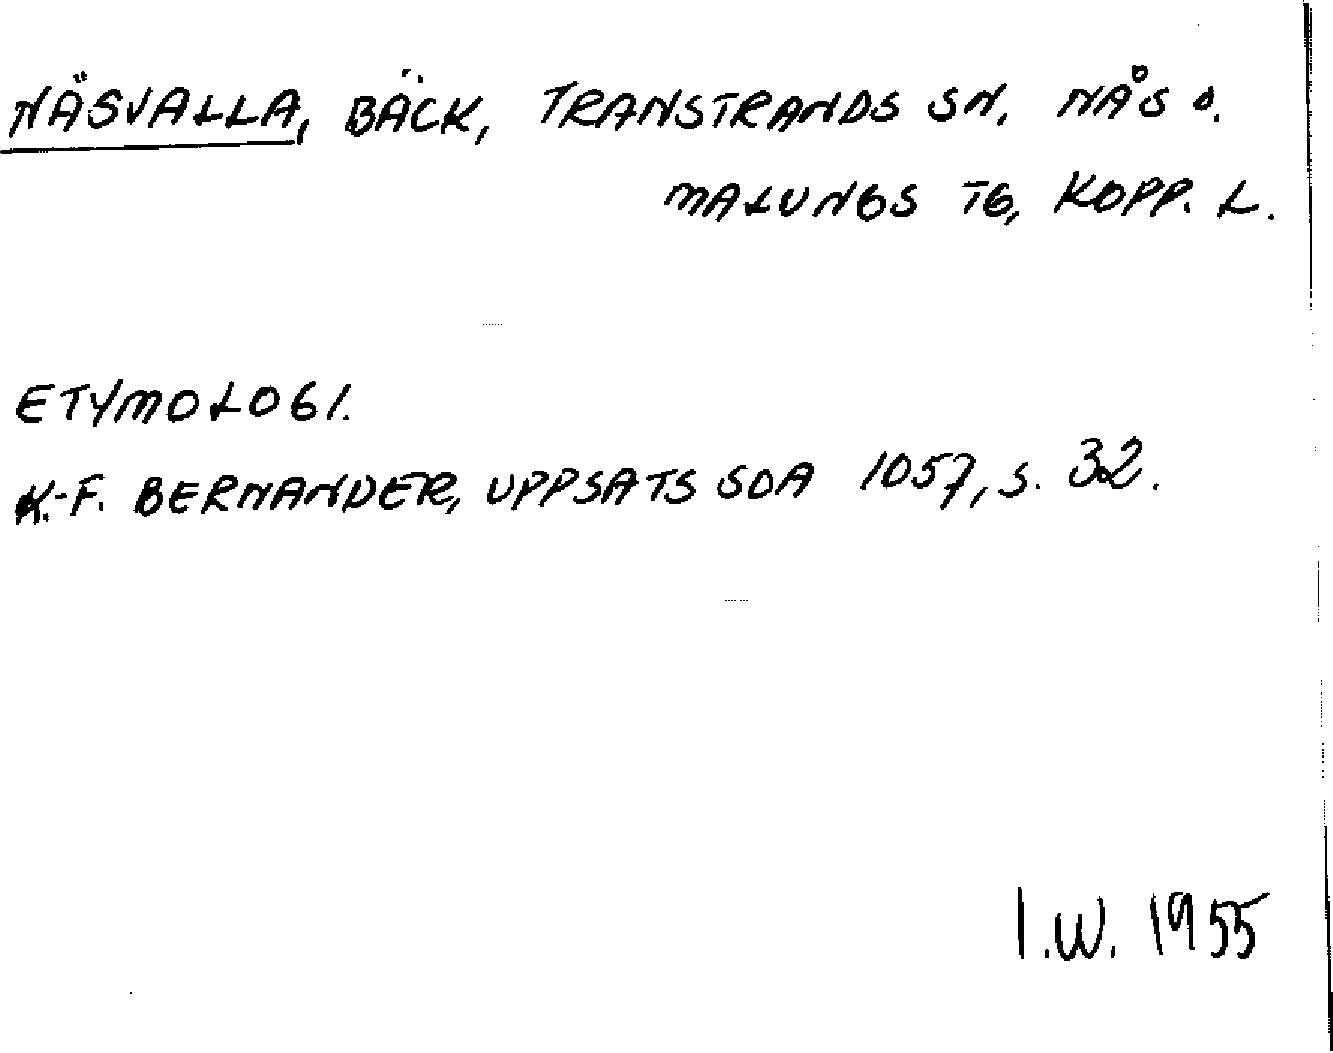 NÄSVALLA, BÄCK, TRANSTRANDS SN. NÅS O.
MALUNGS TG, KOPP. L.
ETYMOLOGI.
K.-F. BERNANDER, UPPSATS SOA 1057, S. 32.
I.W. 1955